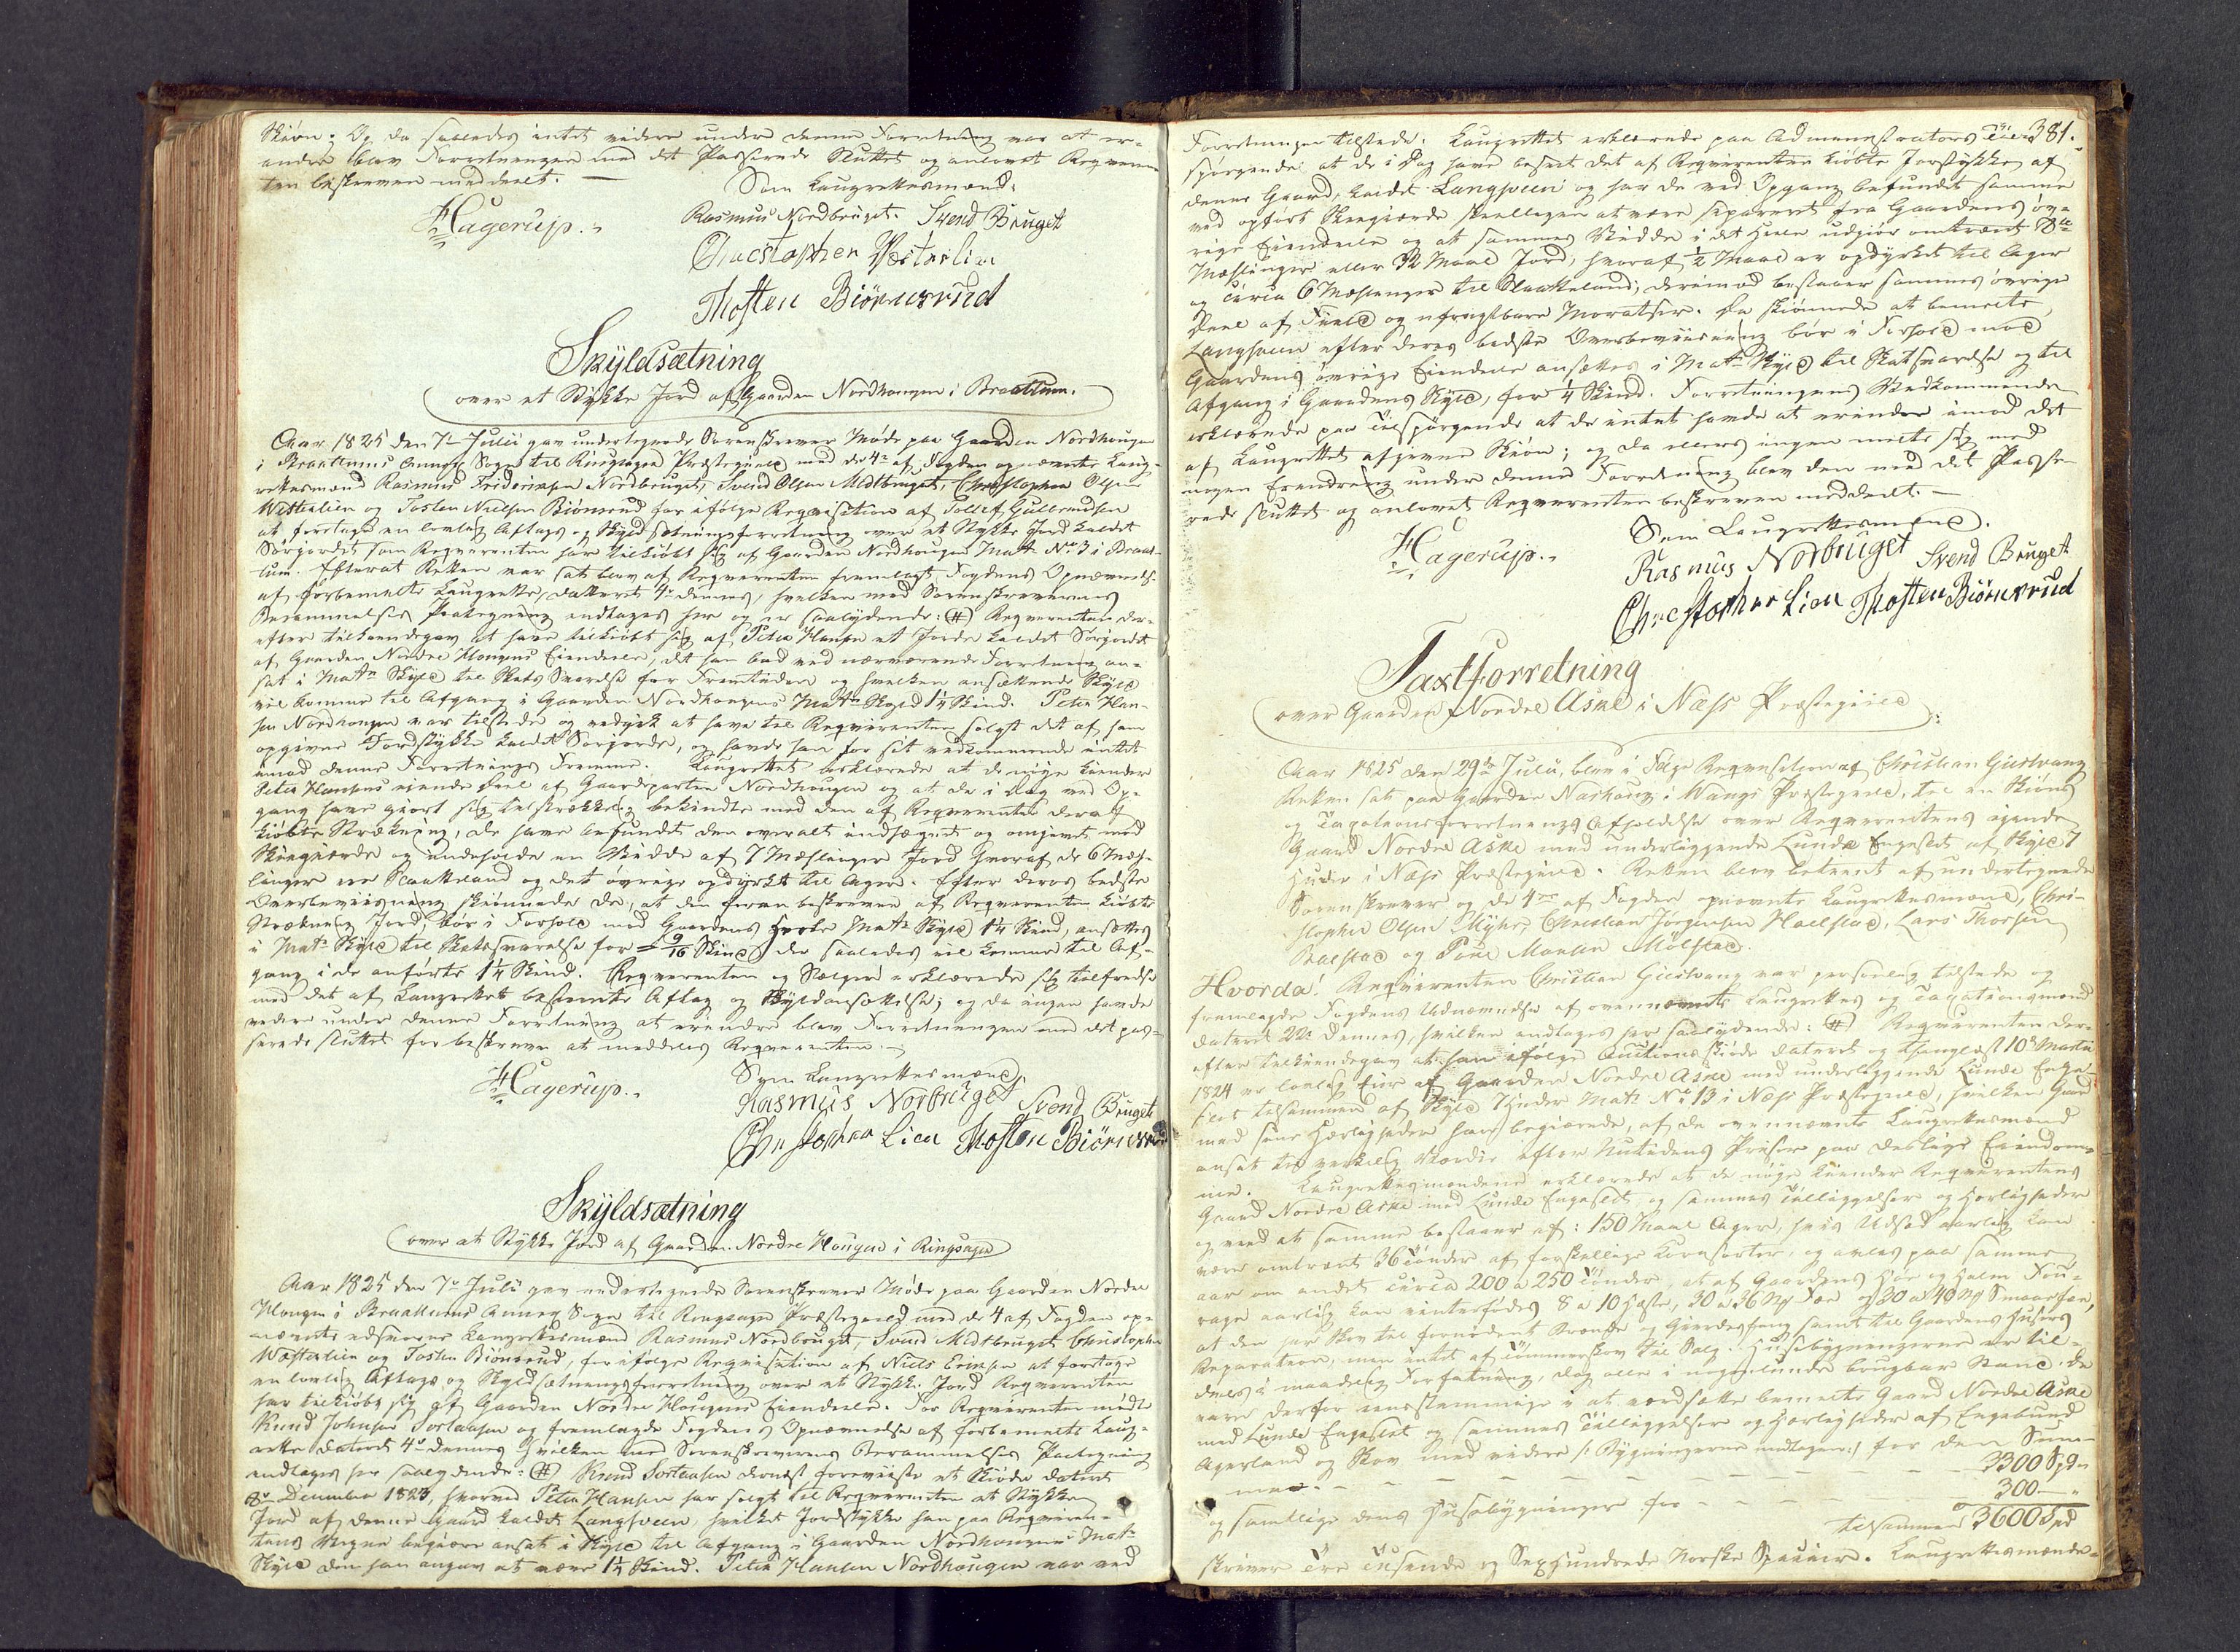 Skiøn. Og da saaledes intet videre under denne Forretning var at er-
andre blev Forretningen med det Passerede sluttet og anlovet Reqviren-
ten beskreven meddeelt. —
Som Laugrettesmænd:
Hagerup.
Rasmus Nordbruget. Svend Bruget
Christopher Westerlien
Thosten Biörnerud
Skyldsætning
over et Stykke Jord af Gaarden Nordhougen i Braattum.
Aar 1825 den 7de Julii gav undertegnede Sorenskriver Møde paa Gaarden Nordhougen
i Braattums Annex Sogn til Ringsager Præstegield med de 4re af Fogden opnævnte Laug-
rettesmænd Rasmus Friderichsen Nordbruget, Svend Olsen Midtbruget, Christopher Olsen
Westerlien og Tosten Nielsen Biörnerud for ifølge Reqvisition af Tollef Gulbrandsen
at foretage en lovlig Aftags- og Skyldsætningsforretning over et Stykke Jord kaldet
Sörjordet som Reqvirenten har tilkiöbt sig af Gaarden Nordhougen Matr. No. 3 i Braat-
tum. Efterat Retten var sat blev af Reqvirenten fremlagt Fogdens Opnævnelse
af forbemeldte Laugrette, dateret 4de dennes, hvilken med Sorenskriverens
Berammelses Paategning indtages her og er saalydende: (#) Reqvirenten der-
efter tilkiendegav at have tilkiöbt sig af Peter Hansen et Jorde kaldet Sörjordet
af Gaarden Nordre Hougens Eiendeele, det han bad ved nærværende Forretning an-
sat i Matr. Skyld til Skats Svarelse for Fremtiden og hvilken ansættende Skyld
vil komme til Afgang i Gaarden Nordhougens Matr. Skyld 1¼ Skind. Peter Han-
sen Nordhougen var tilstede og vedgik at have til Reqvirenten solgt det af ham
opgivne Jordstykke kaldet Sörjordet, og havde han for sit vedkommende intet
imod denne Forretnings Fremme. Laugrettet erklærede at de nöje kiender
Peter Hansens eiende Deel af Gaardparten Nordhougen og at de i Dag ved Op-
gang have giort sig tilstrækkelig bekiendte med den af Reqvirenten deraf
kiöbte Strækning, de have befundet den overalt indhegnet og omgivet med
Skiegiærde og indeholde en Vidde af 7 Mæslinger Jord hvoraf de 6 Mæs-
linger er Slaatteland og det övrige opdyrket til Ager. Efter deres bedste
Overbeviisning skiönnede de, at den foran beskrevne af Reqvirenten kiöbte
Strækning Jord, bör i Forhold med Gaardens Matr. Skyld 1¼ Skind, ansættes
i Matr. Skyld til Skatssvarelse for 9/16 Skind der saaledes vil komme til Af-
gang i de anførte 1¼ Skind. Reqvirenten og Sælgeren erklærede sig tilfredse
med det af Laugrettet bestemte Aftag og Skyldansættelse; og da ingen havde
videre under denne Forretning at erindre blev Forretningen med det pas-
serede sluttet for beskreven at meddeles Reqvirenten. —
Som Laugrettesmænd,
Hagerup.
Rasmus Norbruget Svend Bruget
Christopher Lien Thosten Biörnerud
Skyldsætning
over et Stykke Jord af Gaarden Nordre Hougen i Ringsager
Aar 1825 den 7de Julii gav undertegnede Sorenskriver Møde paa Gaarden Nordre
Hougen i Braattums Annex Sogn til Ringsager Præstegield med de 4 af Fogden op-
nævnte edsvorne Laugrettesmænd Rasmus Nordbruget, Svend Midtbruget Christopher
Westerlien og Tosten Biörnerud, for ifølge Reqvisition af Niels Erichsen at foretage
en lovlig Aftags og Skyldsætningsforretning over et Stykke Jord Reqvirenten
har tilkiöbt sig af Gaarden Nordre Hougens Eiendeele. For Reqvirenten mödte
Knud Johnsen Sortausen og fremlagde Fogdens Opnævnelse af forbemeldte Laug-
rette dateret 4de dennes hvilken med Sorenskriverens Berammelses Paategning
indtages her saalydende: (#) Knud Sortausen dernæst foreviiste et Skiöde dateret
December 1823, hvorved Peter Hansen har solgt til Reqvirenten et Stykke
Jord af denne Gaard kaldet Langsveen, hvilket Jordstykke han paa Reqviren-
tens Vegne begiærer ansat i Skyld til Afgang i Gaarden Nordhougens Matr.
Skyld den han angav at være 1¼ Skind. Peter Hansen Nordhougen var ved
381.
Forretningen tilstede. Laugrettet erklærede paa Administrators Til-
spørgende at de i Dag have beseet det af Reqvirenten kiöbte Jordstykke af
denne Gaard, kaldet Langsveen og har de ved Opgang befundet samme
med opført Skiegiærde forsvarligen at være separeret fra Gaardens öv-
rige Eiendeele og at sammes Vidde i det Hele udgiör omtrent
Mæslinger eller 32 Maal Jord, hvoraf ½ Maal er opdyrket til Ager
og circa 6 Mæslinger til Slaatteland, derimod bestaaer sammes övrige
Deel af Field og ufrugtbare Moratser. De skiönnede at bemeldte
Langsveen efter deres bedste Overbeviisning bör i Forhold mod
Gaardens övrige Eiendeele ansættes i Matr. Skyld til Skatssvarelse og til
Afgang i Gaardens Skyld, for ¼ Skind. Forretningens Vedkommende
erklærede paa Tilspørgende at de intet havde at erindre imod det
af Laugrettet afgivne Skiön; og da ellers ingen meldte sig med
nogen Erindring under denne Forretning blev den med det Passe-
rede sluttet og anlovet Reqvirenten beskreven meddeelt. —
Som Laugrettesmænd.
Hagerup.
Rasmus Norbruget Svend Bruget
Christopher Lien Thosten Biörnerud
Taxtforretning
over Gaarden Nordre Aske i Næss Præstegield
Aar 1825 den 29de Julii, blev i Følge Reqvisition af Christian Giestvang
Retten sat paa Gaarden Naskoug i Wangs Præstegield, til en Skiöns
og Taxationsforretnings Afholdelse over Reqvirentens eiende
Gaard Nordre Aske med underliggende Lunde Engeslet af Skyld 7
Huder i Næss Præstegield. Retten blev betient af undertegnede
Sorenskriver og de 4re af Fogden opnævnte Laugrettesmænd, Chri-
stopher Olsen Myhr, Christian Jørgensen Hallstad, Lars Thorsen
Balstad og Poul Mølstad.
Hvorda! Reqvirenten Christian Giestvang var personlig tilstede og
fremlagde Fogdens Udnævnelse af ovennævnte Laugrettes og Taxationsmænd
dateret 22de dennes, hvilken indtages her saalydende: (#) Reqvirenten der-
efter tilkiendegav at han ifølge Auctions Skiöde dateret og thinglæst 10de Martii
1824 er lovlig Eier af Gaarden Nordre Aske med underliggende Lunde Enge-
slet tilsammen af Skyld 7 Huder Matr. No. 13 i Næss Præstegield, hvilken Gaard
med sine Herligheder han begiærede, af de ovennævnte Laugrettesmænd
ansat til verkelig Værdie efter Nutidens Priser paa deslige Eiendom-
me. Laugrettesmændene erklærede at de nöye kiender Reqvirentens
Gaard Nordre Aske med Lunde Engeslet og sammes Tilliggelser og Herligheder
og veed at samme bestaaer af: 150 Maal Ager, hvis Udsæd aarlig kan
være omtrent 36 Tönder af forskellige Kornsorter, og avles paa samme
aar om andet circa 200 a 250 Tönder, at af Gaardens Höe og Halm Fou-
rage aarlig kan vinterfödes 8 a 10 Heste, 30 a 36 Np Fæe og 30 a 40 Np Smaafæe,
at den har Skov til fornödent Brænde og Gierdesfang samt til Gaardens Huuses
Reparation, men intet af Tömmerskov til Salg. Huusebygningerne ere til-
deels i maadelig Forfatning, dog alle i nogenlunde brugbar Stand. De
vare derfor eenstemmige i at værdsætte bemeldte Gaard Nordre Aske
med Lunde Engeslet og sammes Tilliggelser og Herligheder af Engebund
Agerland og Skov med videre /: Bygningerne undtagen :/ for den Sum-
ma. — — — — — 3300 Spd.
og samtlige dens Huusebygninger for — — — — 300 —
tilsammen 3600 Spd
skriver Tre Tusende og Sexhundrede Norske Species. Laugrettesmænde-